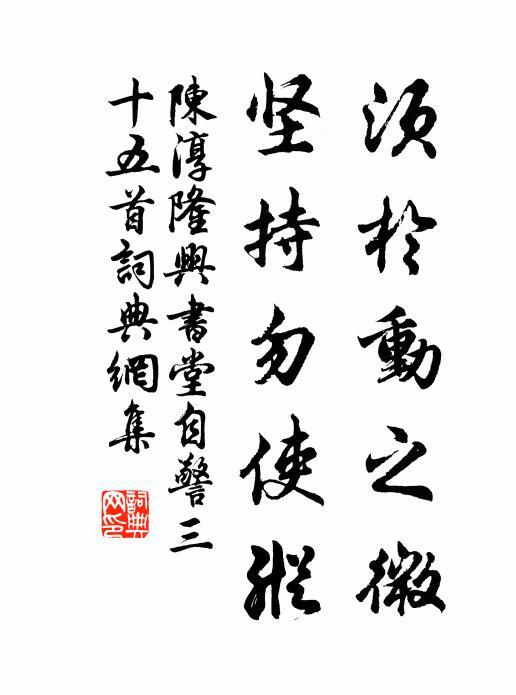 须於動之微
坚持勿使縱
陳淳隆興書堂自警三
十五首詞典網集
詞典
网印